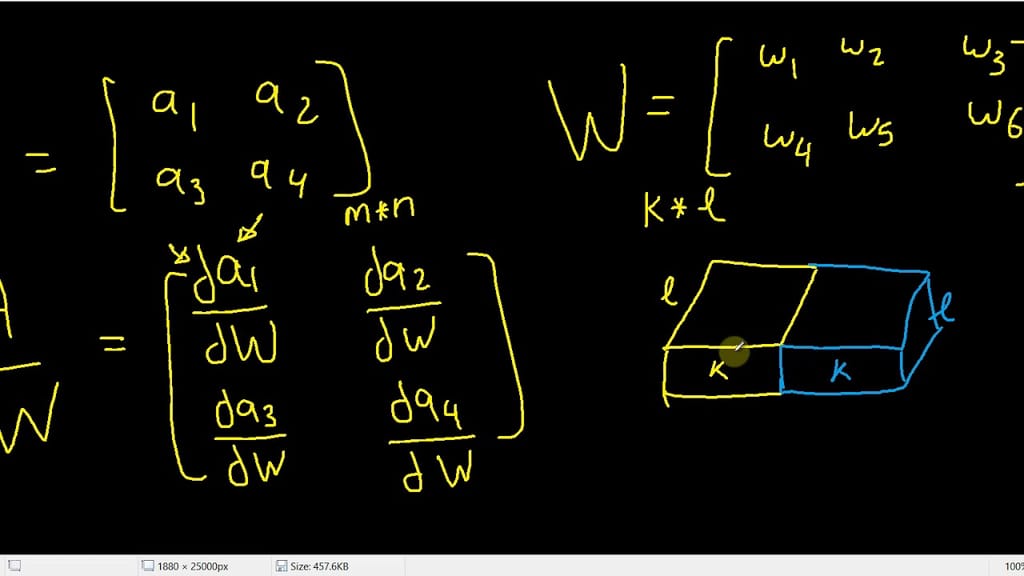 = [ a1 a2
a3 a4 ] m*n
W = [ w1 w2 w3
w4 w5 w6
K * l
A
W
= [ da1/dW da2/dW
da3/dW da4/dW ]
l
l
K
K
1880 × 25000px
Size: 457.6KB
100%